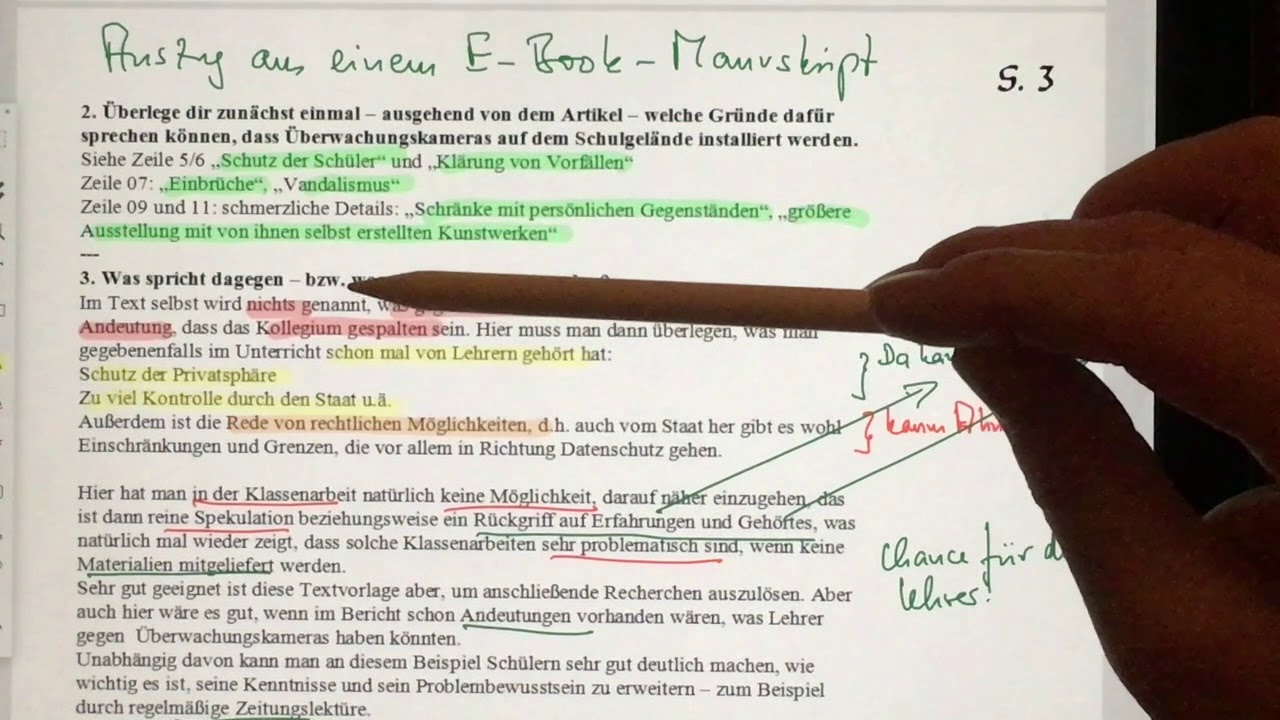 Auszug aus einem E-Book-Manuskript
S. 3
2. Überlege dir zunächst einmal – ausgehend von dem Artikel – welche Gründe dafür
sprechen können, dass Überwachungskameras auf dem Schulgelände installiert werden.
Siehe Zeile 5/6 „Schutz der Schüler“ und „Klärung von Vorfällen“
Zeile 07: „Einbrüche“, „Vandalismus“
Zeile 09 und 11: schmerzliche Details: „Schränke mit persönlichen Gegenständen“, „größere
Ausstellung mit von ihnen selbst erstellten Kunstwerken“
---
3. Was spricht dagegen – bzw.
Im Text selbst wird nichts genannt,
Andeutung, dass das Kollegium gespalten sein. Hier muss man dann überlegen, was man
gegebenenfalls im Unterricht schon mal von Lehrern gehört hat:
Schutz der Privatsphäre
Zu viel Kontrolle durch den Staat u.ä.
Außerdem ist die Rede von rechtlichen Möglichkeiten, d.h. auch vom Staat her gibt es wohl
Einschränkungen und Grenzen, die vor allem in Richtung Datenschutz gehen.
} Da
} kann
Hier hat man in der Klassenarbeit natürlich keine Möglichkeit, darauf näher einzugehen, das
ist dann reine Spekulation beziehungsweise ein Rückgriff auf Erfahrungen und Gehörtes, was
natürlich mal wieder zeigt, dass solche Klassenarbeiten sehr problematisch sind, wenn keine
Materialien mitgeliefert werden.
Chance für
Lehrer!
Sehr gut geeignet ist diese Textvorlage aber, um anschließende Recherchen auszulösen. Aber
auch hier wäre es gut, wenn im Bericht schon Andeutungen vorhanden wären, was Lehrer
gegen Überwachungskameras haben könnten.
Unabhängig davon kann man an diesem Beispiel Schülern sehr gut deutlich machen, wie
wichtig es ist, seine Kenntnisse und sein Problembewusstsein zu erweitern – zum Beispiel
durch regelmäßige Zeitungslektüre.